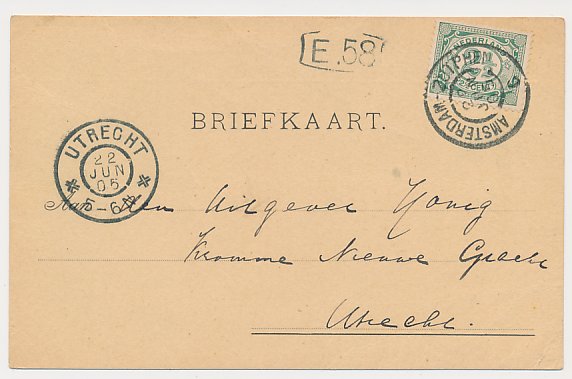 E.58
NEDERLAND
AMSTERDAM-ZUTPHEN
BRIEFKAART.
UTRECHT
22
JUN
05
5-6N
Aan den Uitgever Honig
Kromme Nieuwe Gracht
Utrecht.